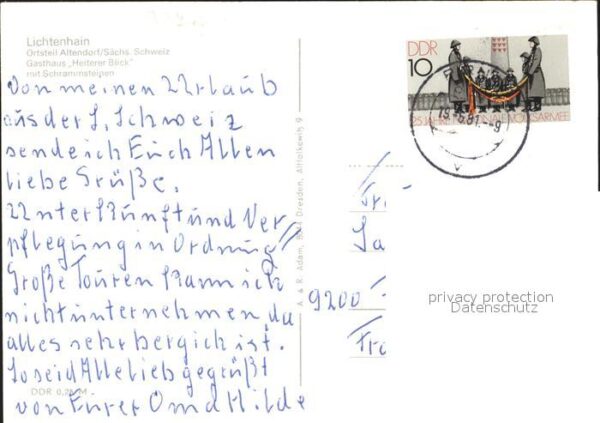 Lichtenhain
Ortsteil Altendorf/Sächs. Schweiz
Gasthaus „Heiterer Blick"
mit Schrammsteinen
Von meinen Urlaub
aus der S. Schweiz
sende ich Euch Allen
liebe Grüße.
Unterkunft und Ver
pflegung in Ordnung!
Große Touren kann ich
nicht unternehmen da
alles sehr bergich ist.
So seid Alle lieb gegrüßt
von Eurer Oma Hilde
DDR 0,25 M
A. & R. Adam, Dresden, Altfalkewitz 9
DDR
10
25 JAHRE NATIONALE VOLKSARMEE
9200
privacy protection
Datenschutz